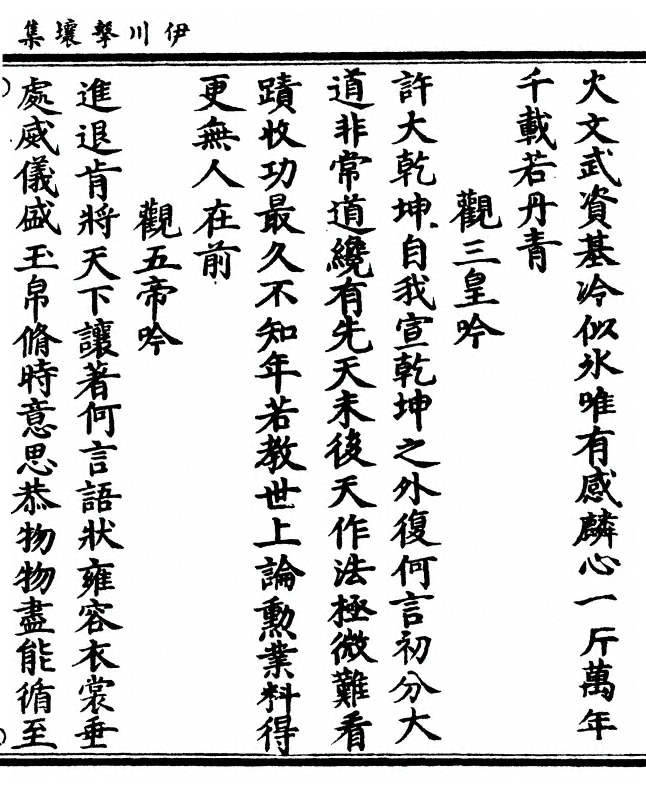 伊川擊壤集
火文武資基冷似氷唯有感麟心一斤萬年
千載若丹青
觀三皇吟
許大乾坤自我宣乾坤之外復何言初分大
道非常道纔有先天未後天作法極微難看
蹟收功最久不知年若教世上論勳業料得
更無人在前
觀五帝吟
進退肯將天下讓著何言語狀雍容衣裳垂
處威儀盛玉帛脩時意思恭物物盡能循至